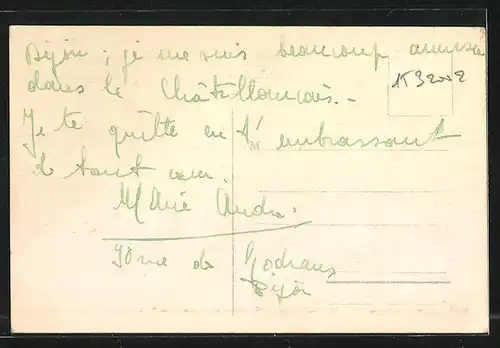 Dijon ; je me suis beaucoup amusée
dans le Châtillonnais. -
Je te quitte en t'embrassant
de tout cœur.
Marie André.
90 rue de Godrans
Dijon
M